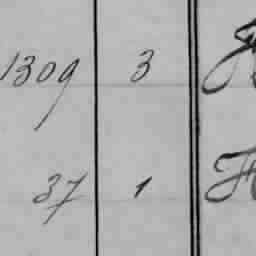 1309 3
37 1